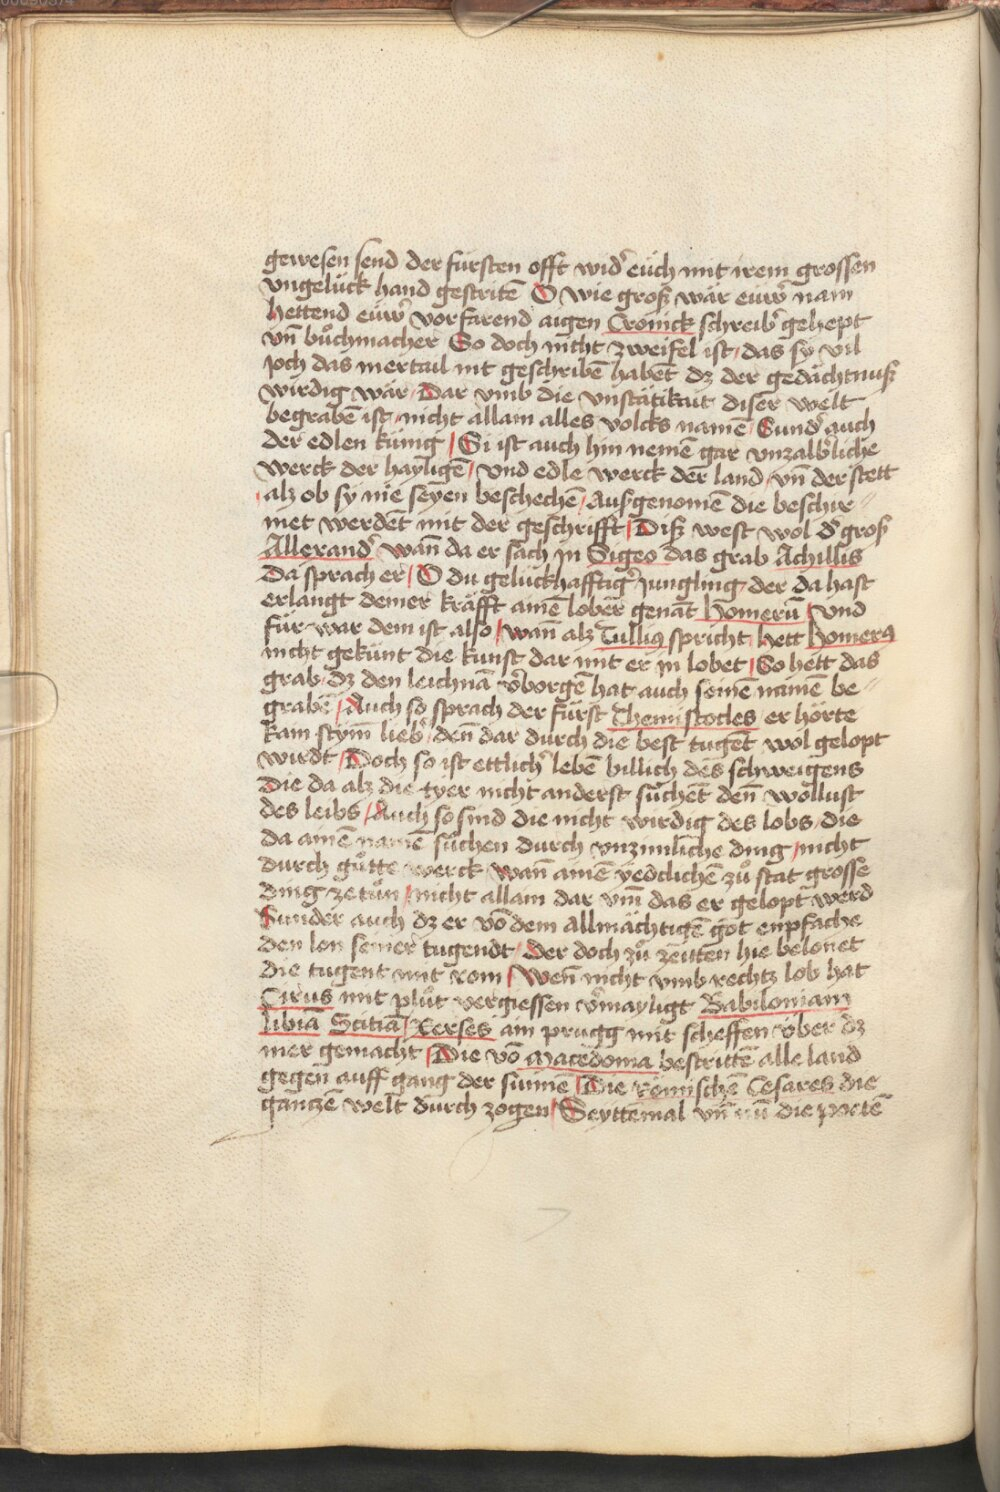 gewesen send der fürsten offt wid᷑ eüch mit irem grossen
vngelück hand gestritē O wie groß wär eüwr᷑ nam
hettend eüwr᷑ vorfarend aigen Cronick schreib᷑ gehept
vn̄ bůchmacher So doch nicht zweifel ist / das sy vil
joch das mertail nit geschribē habēt dz der gedächtnuß
wirdig wär / Dar vmb die vnstätikait diser welt
begrabē ist / nicht allain alles volcks namē / Sund᷑ auch
der edlen künig / Si ist auch hin nemē gar vnzalb᷑liche
werck der hayligē / vnd edle werck der land / vn̄ der stett
/ alz ob sy nie seyen beschechē / Außgenomē die beschir⸗
met werdēt mit der geschrifft / Diß west wol d᷑ groß
Allexand᷑ wān da er sach in Sigeo das grab Achillis
Da sprach er / O du gelückhafftig᷑ jungling / der da hast
erlangt deiner kräfft ainē lober genāt Homerū / vnd
für war dem ist also / wān alz Tulliꝰ spricht / hett Homerꝰ
nicht gekünt die kunst dar mit er in lobet / So hett das
grab / dz den leichnā v᷑borgē hat auch seinē namē be⸗
grabē / Auch so sprach der fürst Themistocles / er hörte
kain stym̄ lieb᷑ / den̄ dar durch die best tugēt wol gelopt
wirdt / Doch so ist ettlich᷑ lebē billich des schweigens
Die da alz die tyer nicht anderst sůchēt den̄ wollust
des leibs / Auch so sind die nicht wirdig des lobs / die
da ainē namē sůchen durch vnzimliche ding / nicht
durch gůtte werck / wān ainē yedclichē zů stat grosse
ding ze tůn / nicht allain dar vm̄ das er gelopt werd
Sunder auch dz er vō dem allmächtigē got enpfache
den lon seiner tugendt / der doch zů zeitten hie belonet
die tugent mit rom / Wen̄ nicht vmb rechtz lob hat
Cirus mit plůt vergiessen v᷑mayligt Babiloniam
libiā Scitiā / Xerses ain prugg mit scheffen über dz
mer gemacht / Die vō Macedonia bestrittē alle land
gegen auff gang der sun̄nē / Die römischē Cesares die
gantze welt durch zogen / Seyttemal vn̄ nū die poetē